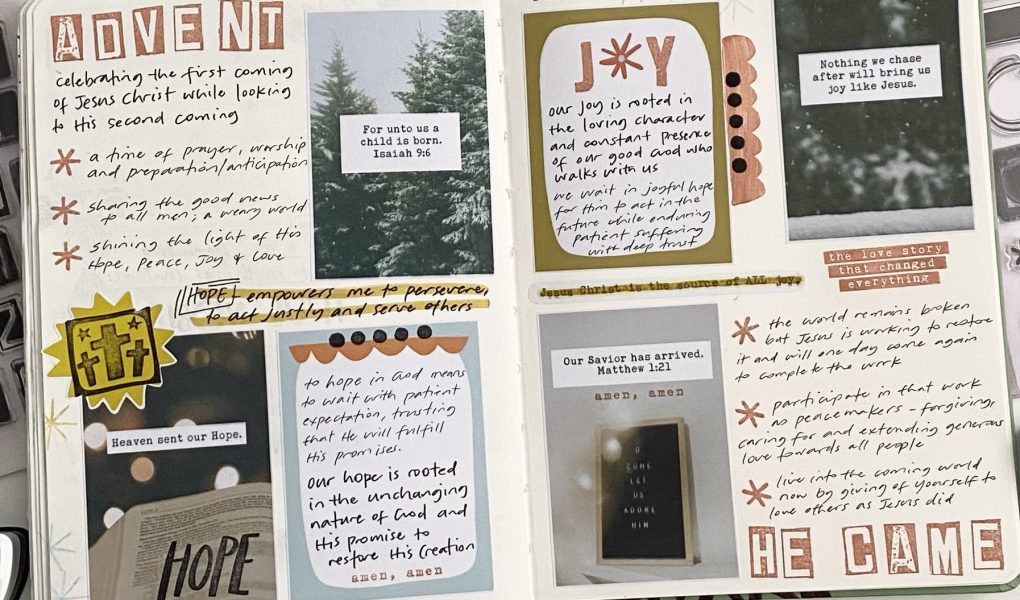 ADVENT
celebrating the first coming
of Jesus Christ while looking
to His second coming
a time of prayer, worship
and preparation/anticipation
sharing the good news
to all men; a weary world
shining the light of His
Hope, Peace, Joy & Love
For unto us a
child is born.
Isaiah 9:6
HOPE empowers me to persevere,
to act justly and serve others
Heaven sent our Hope.
HOPE
to hope in God means
to wait with patient
expectation, trusting
that He will fulfill
His promises.
our hope is rooted
in the unchanging
nature of God and
His promise to
restore His Creation
amen, amen
JOY
our joy is rooted in
the loving character
and constant presence
of our good God who
walks with us
we wait in joyful hope
for Him to act in the
future while enduring
patient suffering
with deep trust
Nothing we chase
after will bring us
joy like Jesus.
the love story
that changed
everything
Jesus Christ is the source of ALL joy.
Our Savior has arrived.
Matthew 1:21
amen, amen
O
COME
LET
US
ADORE
HIM
the world remains broken
but Jesus is working to restore
it and will one day come again
to complete the work
participate in that work
as peacemakers - forgiving,
caring for and extending generous
love towards all people
live into the coming world
now by giving of yourself to
love others as Jesus did
HE CAME